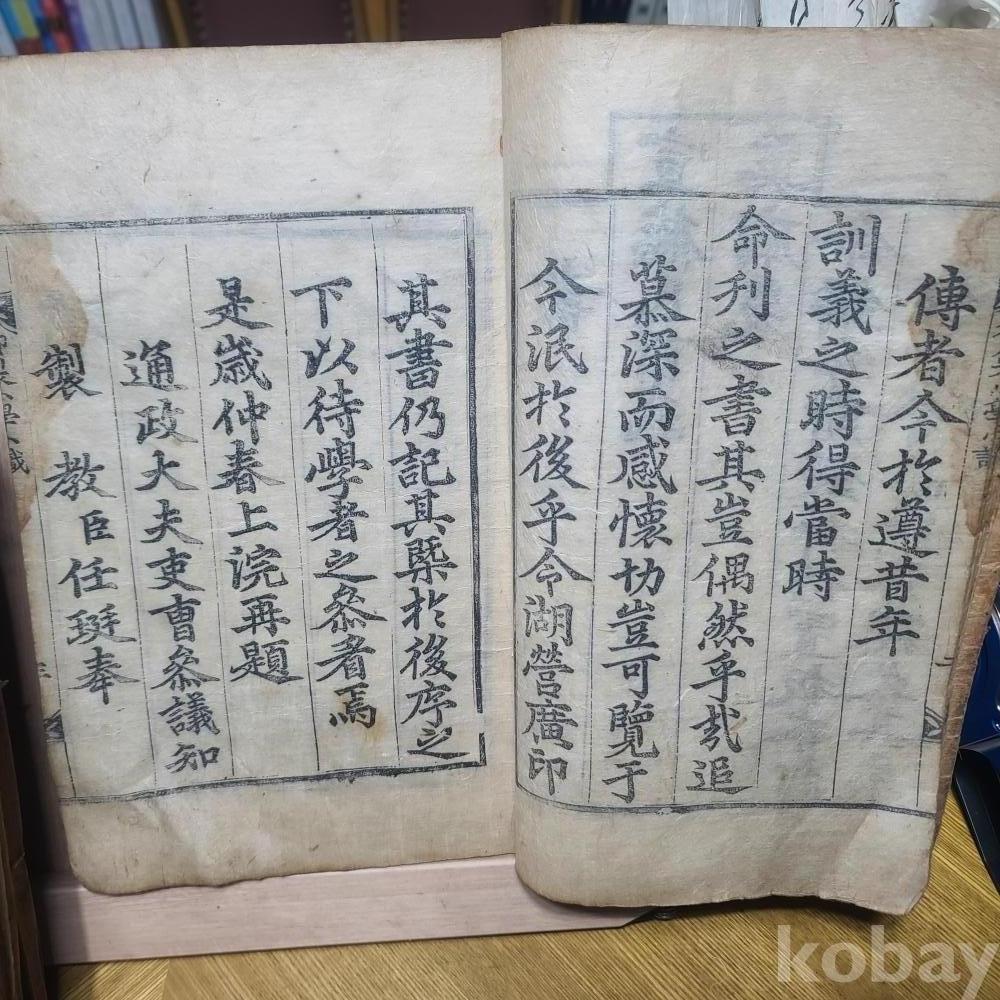 傳者今於遵昔年
訓義之時得當時
命刋之書其豈偶然乎哉追
慕深而感懷切豈可覽于
今泯於後乎令湖營廣印
其書仍記其槩於後序之
下以待學者之叅者焉
是歲仲春上浣再題
通政大夫吏曹叅議知
製 教臣任珽奉
kobay